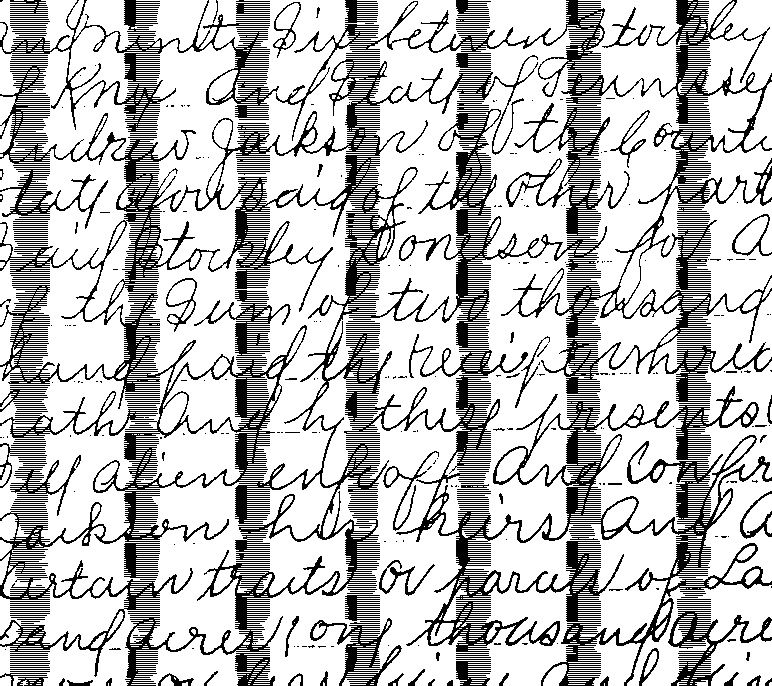 and ninety Six between Stockley
of Knox And State of Tennessey
Andrew Jackson of the County
State aforesaid of the other part
Said Stockley Donelson for A
of the Sum of two thousand
hand paid the receipt whereo
hath And by these presents
Sell alien enfeoff And Confir
Jackson his heirs And A
Certain tracts or parcels of La
sand acres one thousand acre
more or less lying and bein